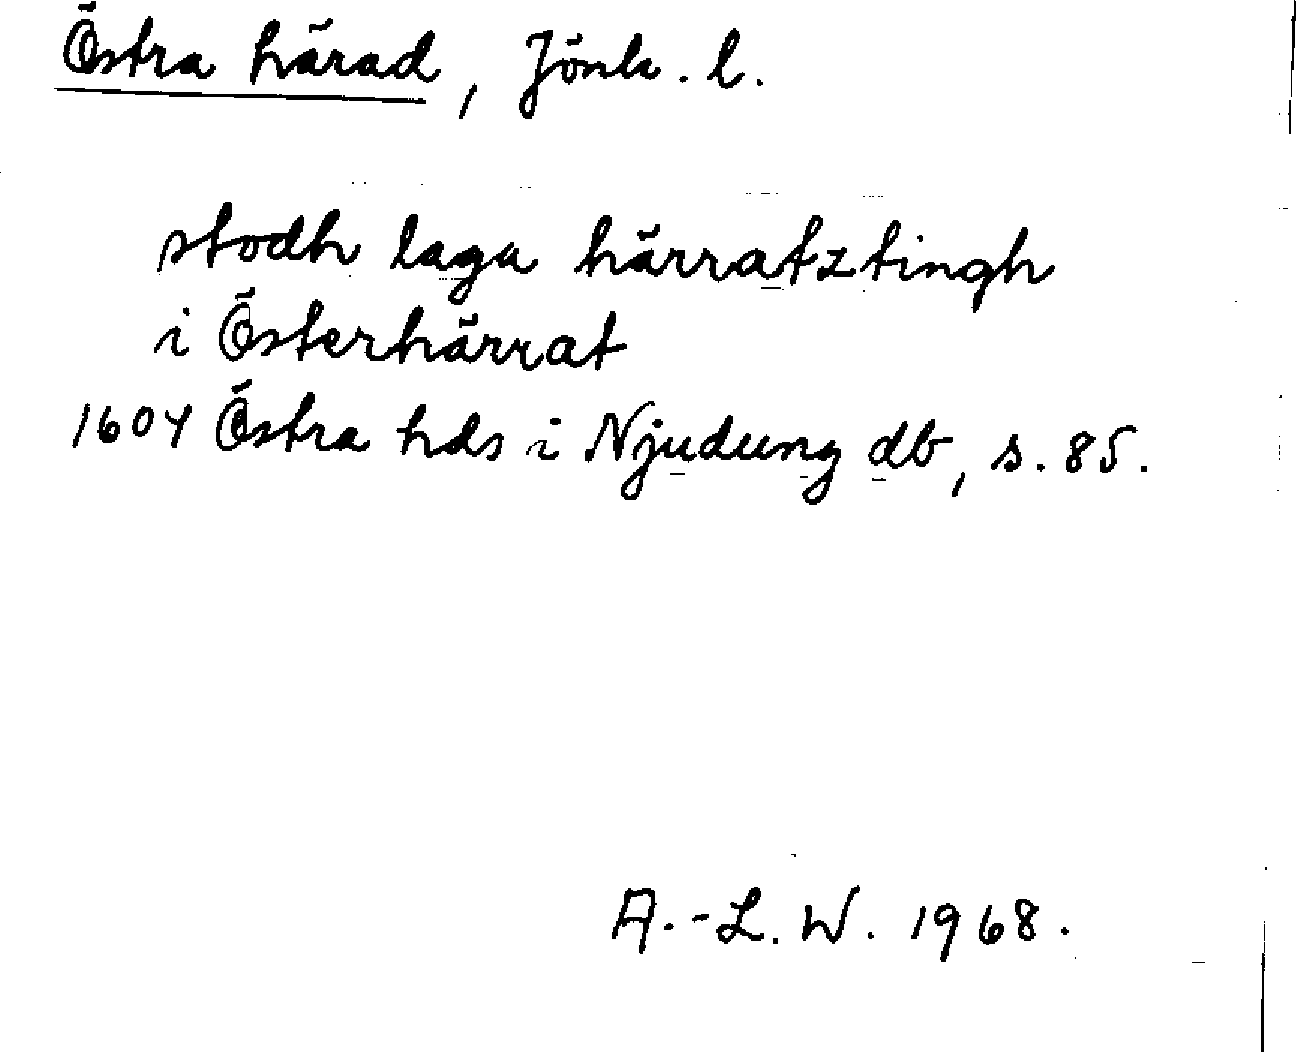 Östra härad, Jönk. l.
stodh laga härratztingh
i Österhärrat
1604 Östra hds i Njudung db, s. 85.
A.-L. W. 1968.